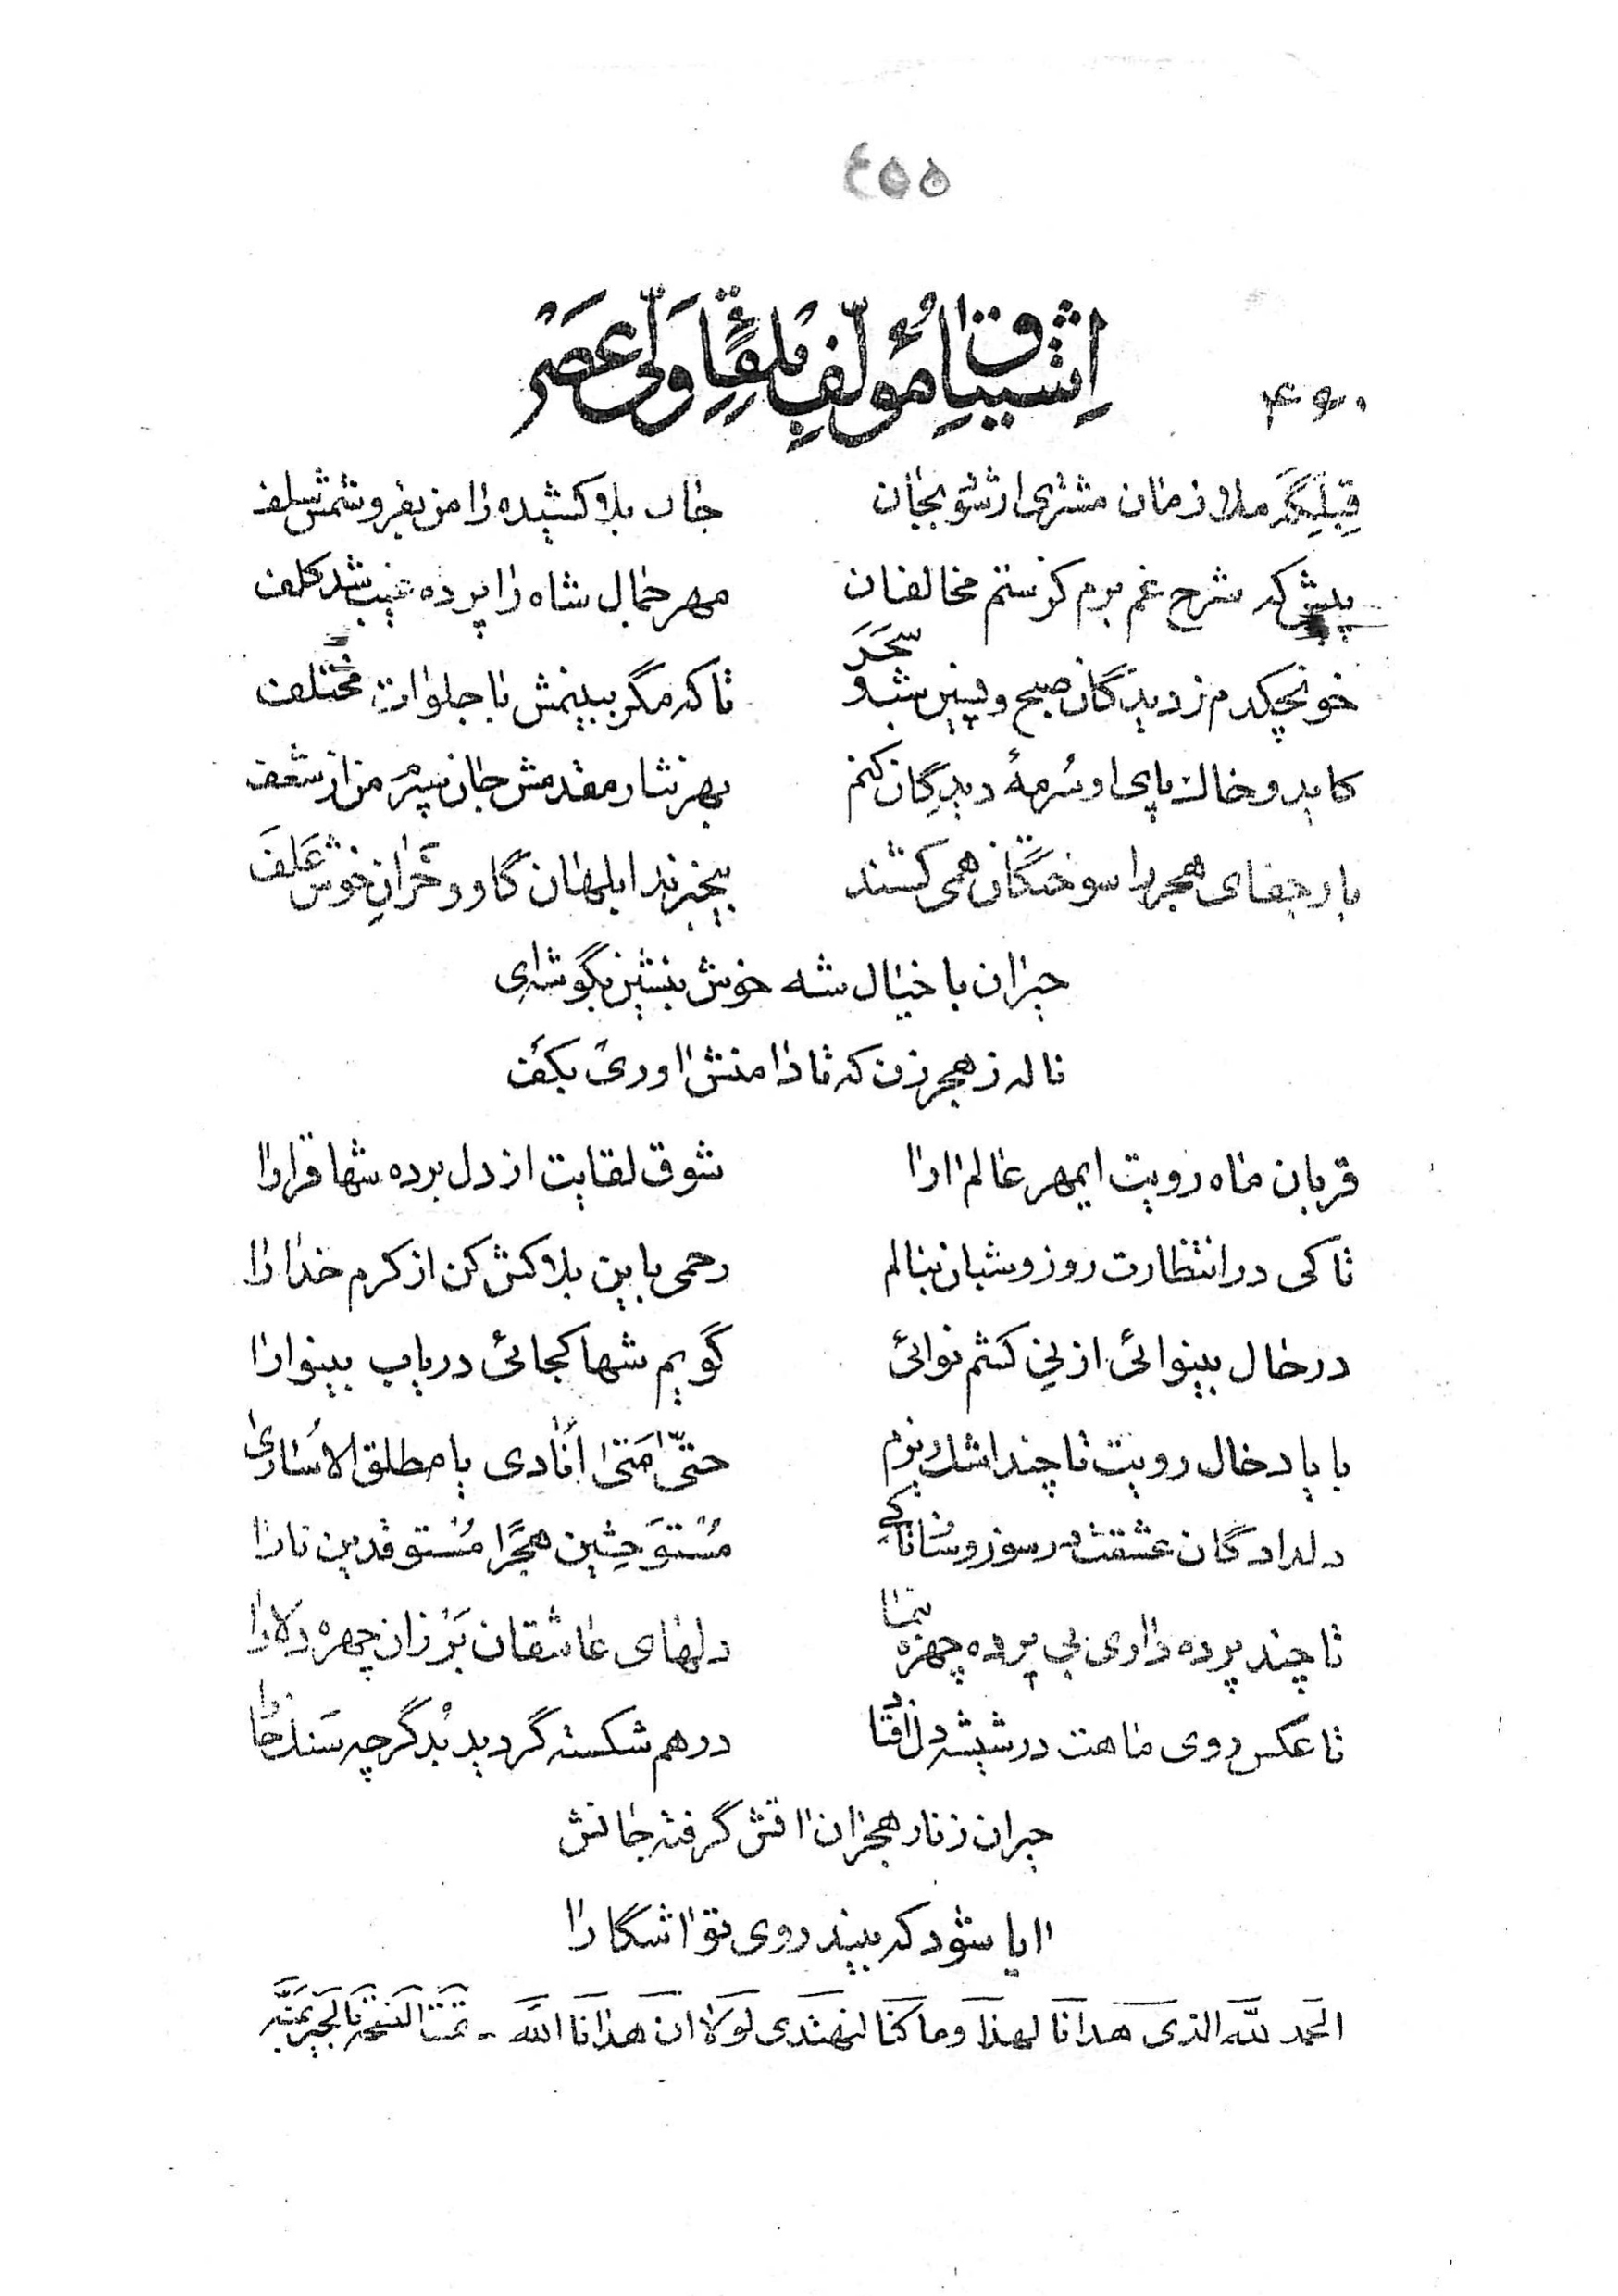 ٤٥٥
اشتیاق مؤلّف بلقاء ولیّ عصر
۴۶۰
مشتری ار شو بجان جان بلا کشیده را من بفروشمش سلف
پیش که شرح غم برم کز ستم مخالفان مهر جمال شاه را پرده غیب شد کلف
خونچکدم ز دیدگان صبح و پسین شب و سحر تا که مگر ببینمش با جلوات مختلف
کاید و خاک پای او سُرمهٔ دیدگان کنم بهر نثار مقدمش جان سپرم من از شعف
بار جفای هجر را سوختگان همی کشند بیخبرند ابلهان گاو و خران خوش عَلَف
حیران با خیال شه خوش بنشین بگوشه‌ای
ناله ز هجر زن که تا دامنش آوری بکف
قربان ماه رویت ایمهر عالم آرا شوق لقایت از دل برده شها قرارا
تا کی در انتظارت روز و شبان بنالم رحمی باین بلاکش کن از کرم خدا را
در حال بینوائی از نی کشم نوائی گویم شها کجائی دریاب بینوا را
با یاد خال رویت تا چند اشک ریزم حتّی مَتی اُنادی یا مطلق الاُساری
دلدادگان عشقت در سوز و ساز تا کی مُستَوحِشین هجرًا مُستوقدین نارا
تا چند پرده داری بی پرده چهره بنما دلهای عاشقان بَر زان چهره دلارا
تا عکس روی ماهت در شیشه دل افتاد درهم شکسته گردید بُد گرچه سنک خارا
حیران ز نار هجران آتش گرفته جانش
آیا شود که بیند روی تو آشکارا
الحمد للّه الذی هدانا لهذا وما کنا لنهتدی لولا ان هدانا اللّه - تمت النسخة بالخیر بمنّه